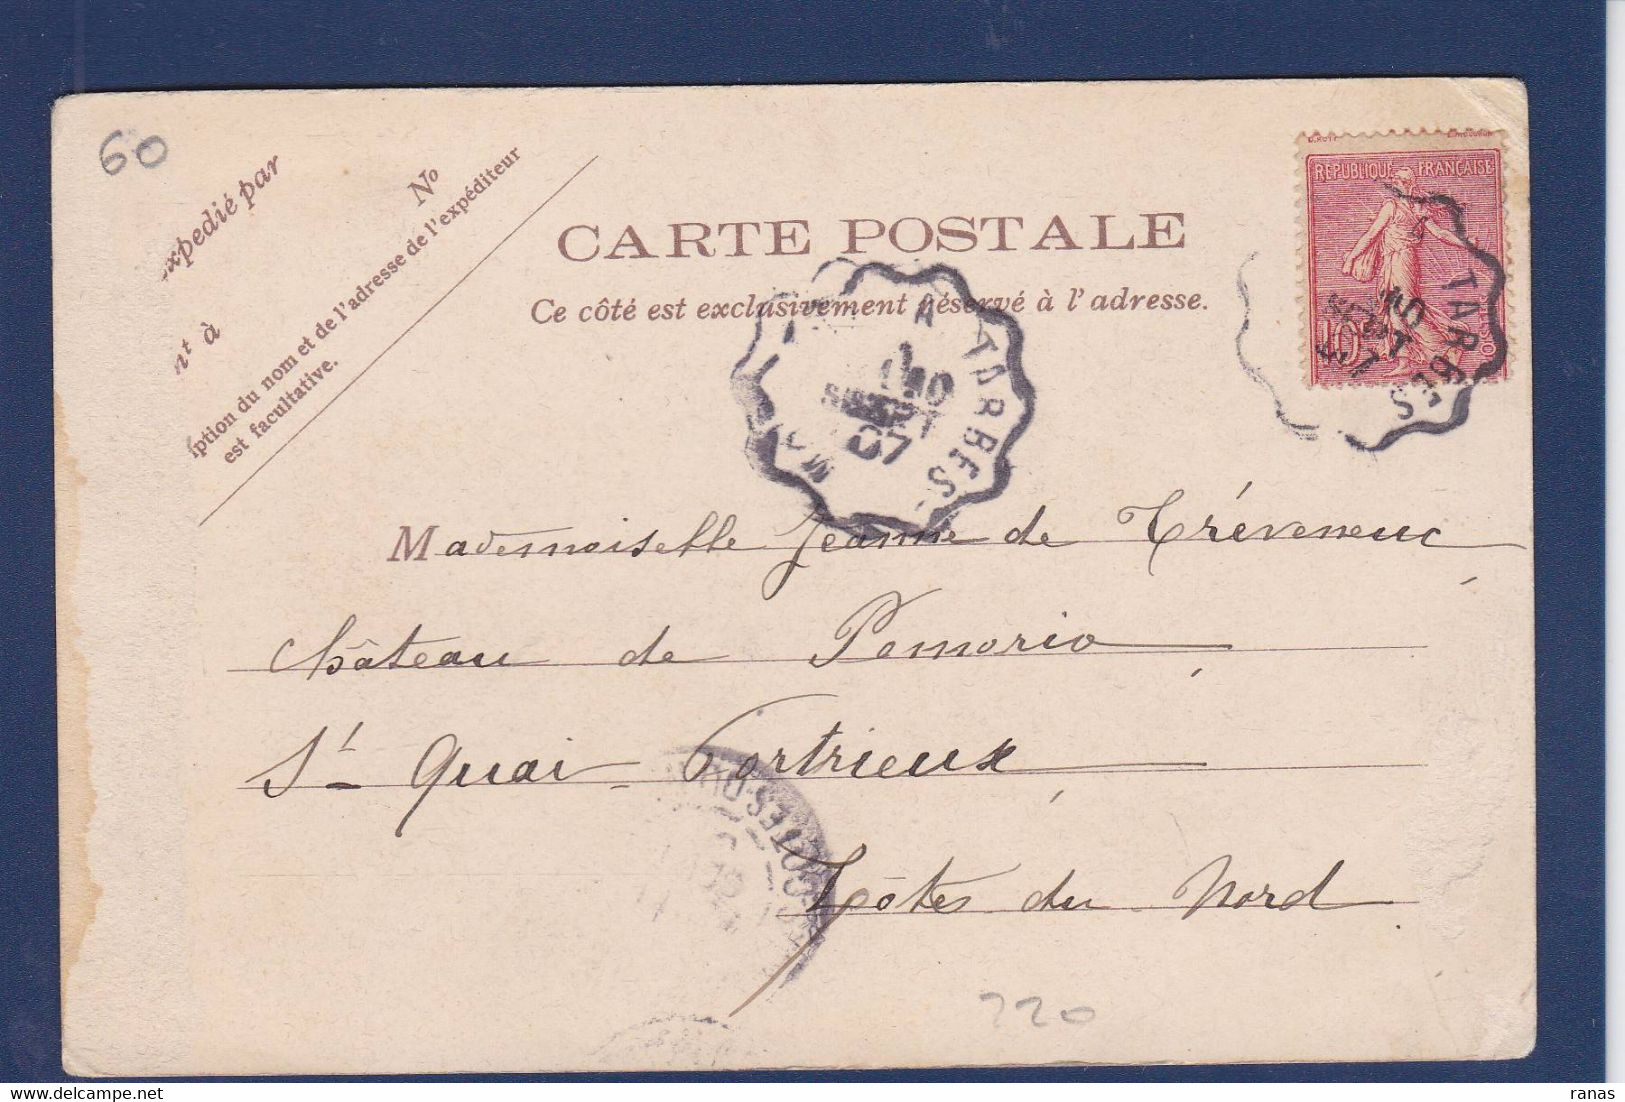 60
xpedié par
nt à
No
iption du nom et de l'adresse de l'expéditeur
est facultative.
CARTE POSTALE
Ce côté est exclusivement réservé à l'adresse.
REPUBLIQUE FRANÇAISE
10
TARBES
10
SEPT
07
A TARBES
10
SEPT
07
Mademoiselle Jeanne de Tréveneuc
Château de Pomorio
St Quai Portrieux
COTES-DU
Côtes du Nord
220
ranas